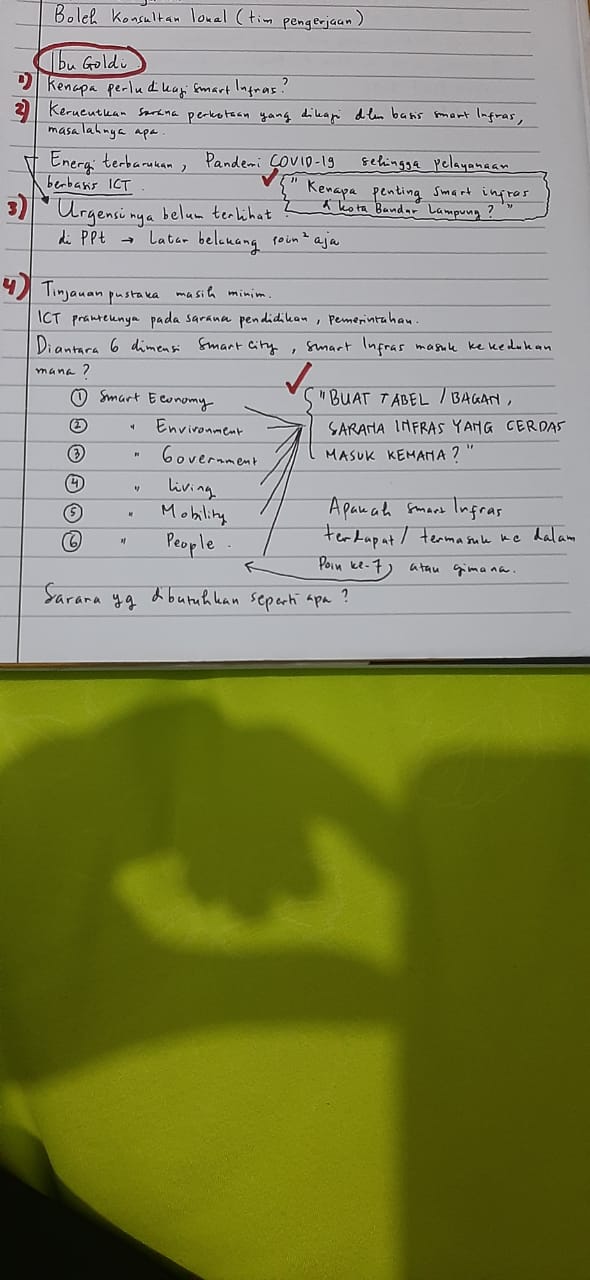 Boleh Konsultan lokal (tim pengerjaan)
Ibu Goldi
1) Kenapa perlu dikaji Smart Infras?
2) Kerucutkan sarana perkotaan yang dikaji dlm basis smart Infras,
masalahnya apa.
Energi terbarukan, Pandemi COVID-19 sehingga pelayanaan
berbasis ICT.
"Kenapa penting smart infras
di kota Bandar Lampung?"
3) Urgensinya belum terlihat
di PPt → Latar belakang poin² aja
4) Tinjauan pustaka masih minim.
ICT prakteknya pada sarana pendidikan, pemerintahan.
Diantara 6 dimensi Smart City, smart Infras masuk ke kedukan
mana?
① Smart Economy
② " Environment
③ " Government
④ " Living
⑤ " Mobility
⑥ " People.
"BUAT TABEL / BAGAN,
SARANA INFRAS YANG CERDAS
MASUK KEMANA?"
Apakah smart Infras
terdapat / termasuk ke dalam
Poin ke-7, atau gimana.
Sarana yg dibutuhkan seperti apa?